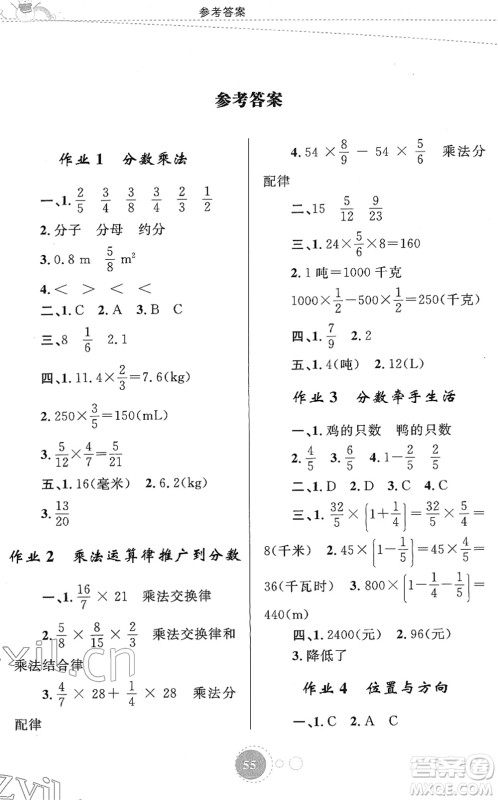 参考答案
参考答案
作业1 分数乘法
一、1. 2/5 3/4 3/8 3/4 1/2
2.分子 分母 约分
3. 0.8 m 5/8 m²
4.< > < >
二、1. C 2. A 3. B 4. C
三、8 1/6 2.1
四、1. 11.4×2/3=7.6(kg)
2. 250×3/5=150(mL)
3. 5/12×4/7=5/21
五、1. 16(毫米) 2. 6.2(kg)
3. 13/20
作业2 乘法运算律推广到分数
一、1. 16/7 × 21 乘法交换律
2. 5/8 × 8/15 × 2/3 乘法交换律和
乘法结合律
3. 4/7 × 28 + 1/4 × 28 乘法分
配律
4. 54 × 8/9 − 54 × 5/6 乘法分
配律
二、15 5/12 9/23
三、1. 24×5/6×8=160
2. 1吨=1000千克
1000×1/2−500×1/2=250(千克)
四、1. 7/9 2. 2
五、1. 4(吨) 2. 12(L)
作业3 分数牵手生活
一、1.鸡的只数 鸭的只数
2. 4/5 3. 4/5 4. 1−2/5
二、1. D 2. D 3. C 4. C
三、1. 32/5×(1+1/4)=32/5×5/4=
8(千米) 2. 45×(1−1/5)=45×4/5=
36(千瓦时) 3. 800×(1−1/4−1/5)=
440(m)
四、1. 2400(元) 2. 96(元)
3.降低了
作业4 位置与方向
一、1. C 2. A C
55
zyil.cn
zyil
答案圈
MXQE.COM